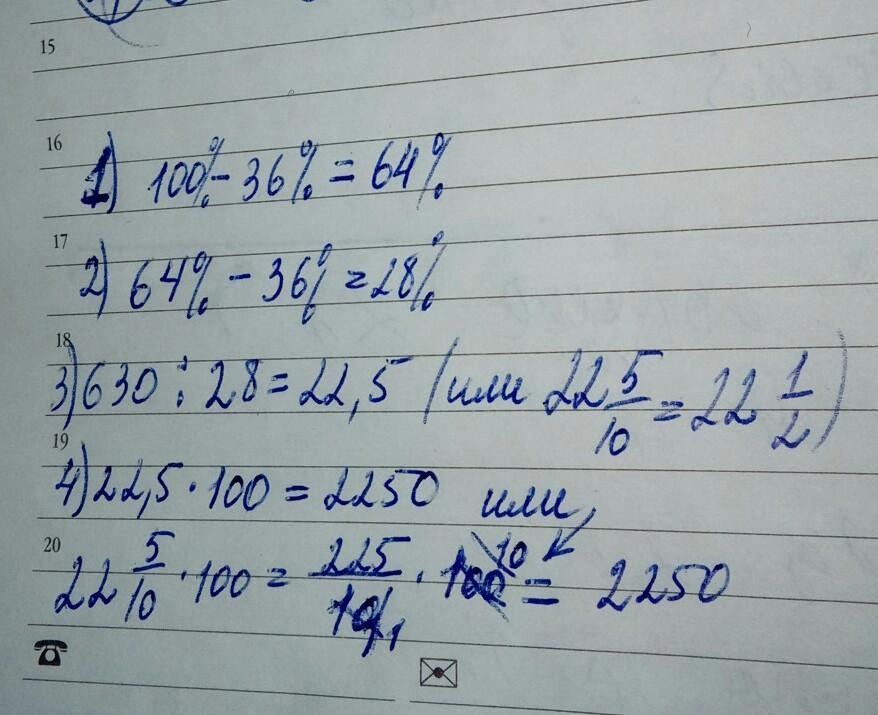 15
16
1) 100% - 36% = 64%
17
2) 64% - 36% = 28%
18
3) 630 : 28 = 22,5 (или 22 5/10 = 22 1/2)
19
4) 22,5 · 100 = 2250 или,
20
22 5/10 · 100 = 225/10 1 · 100 10 = 2250